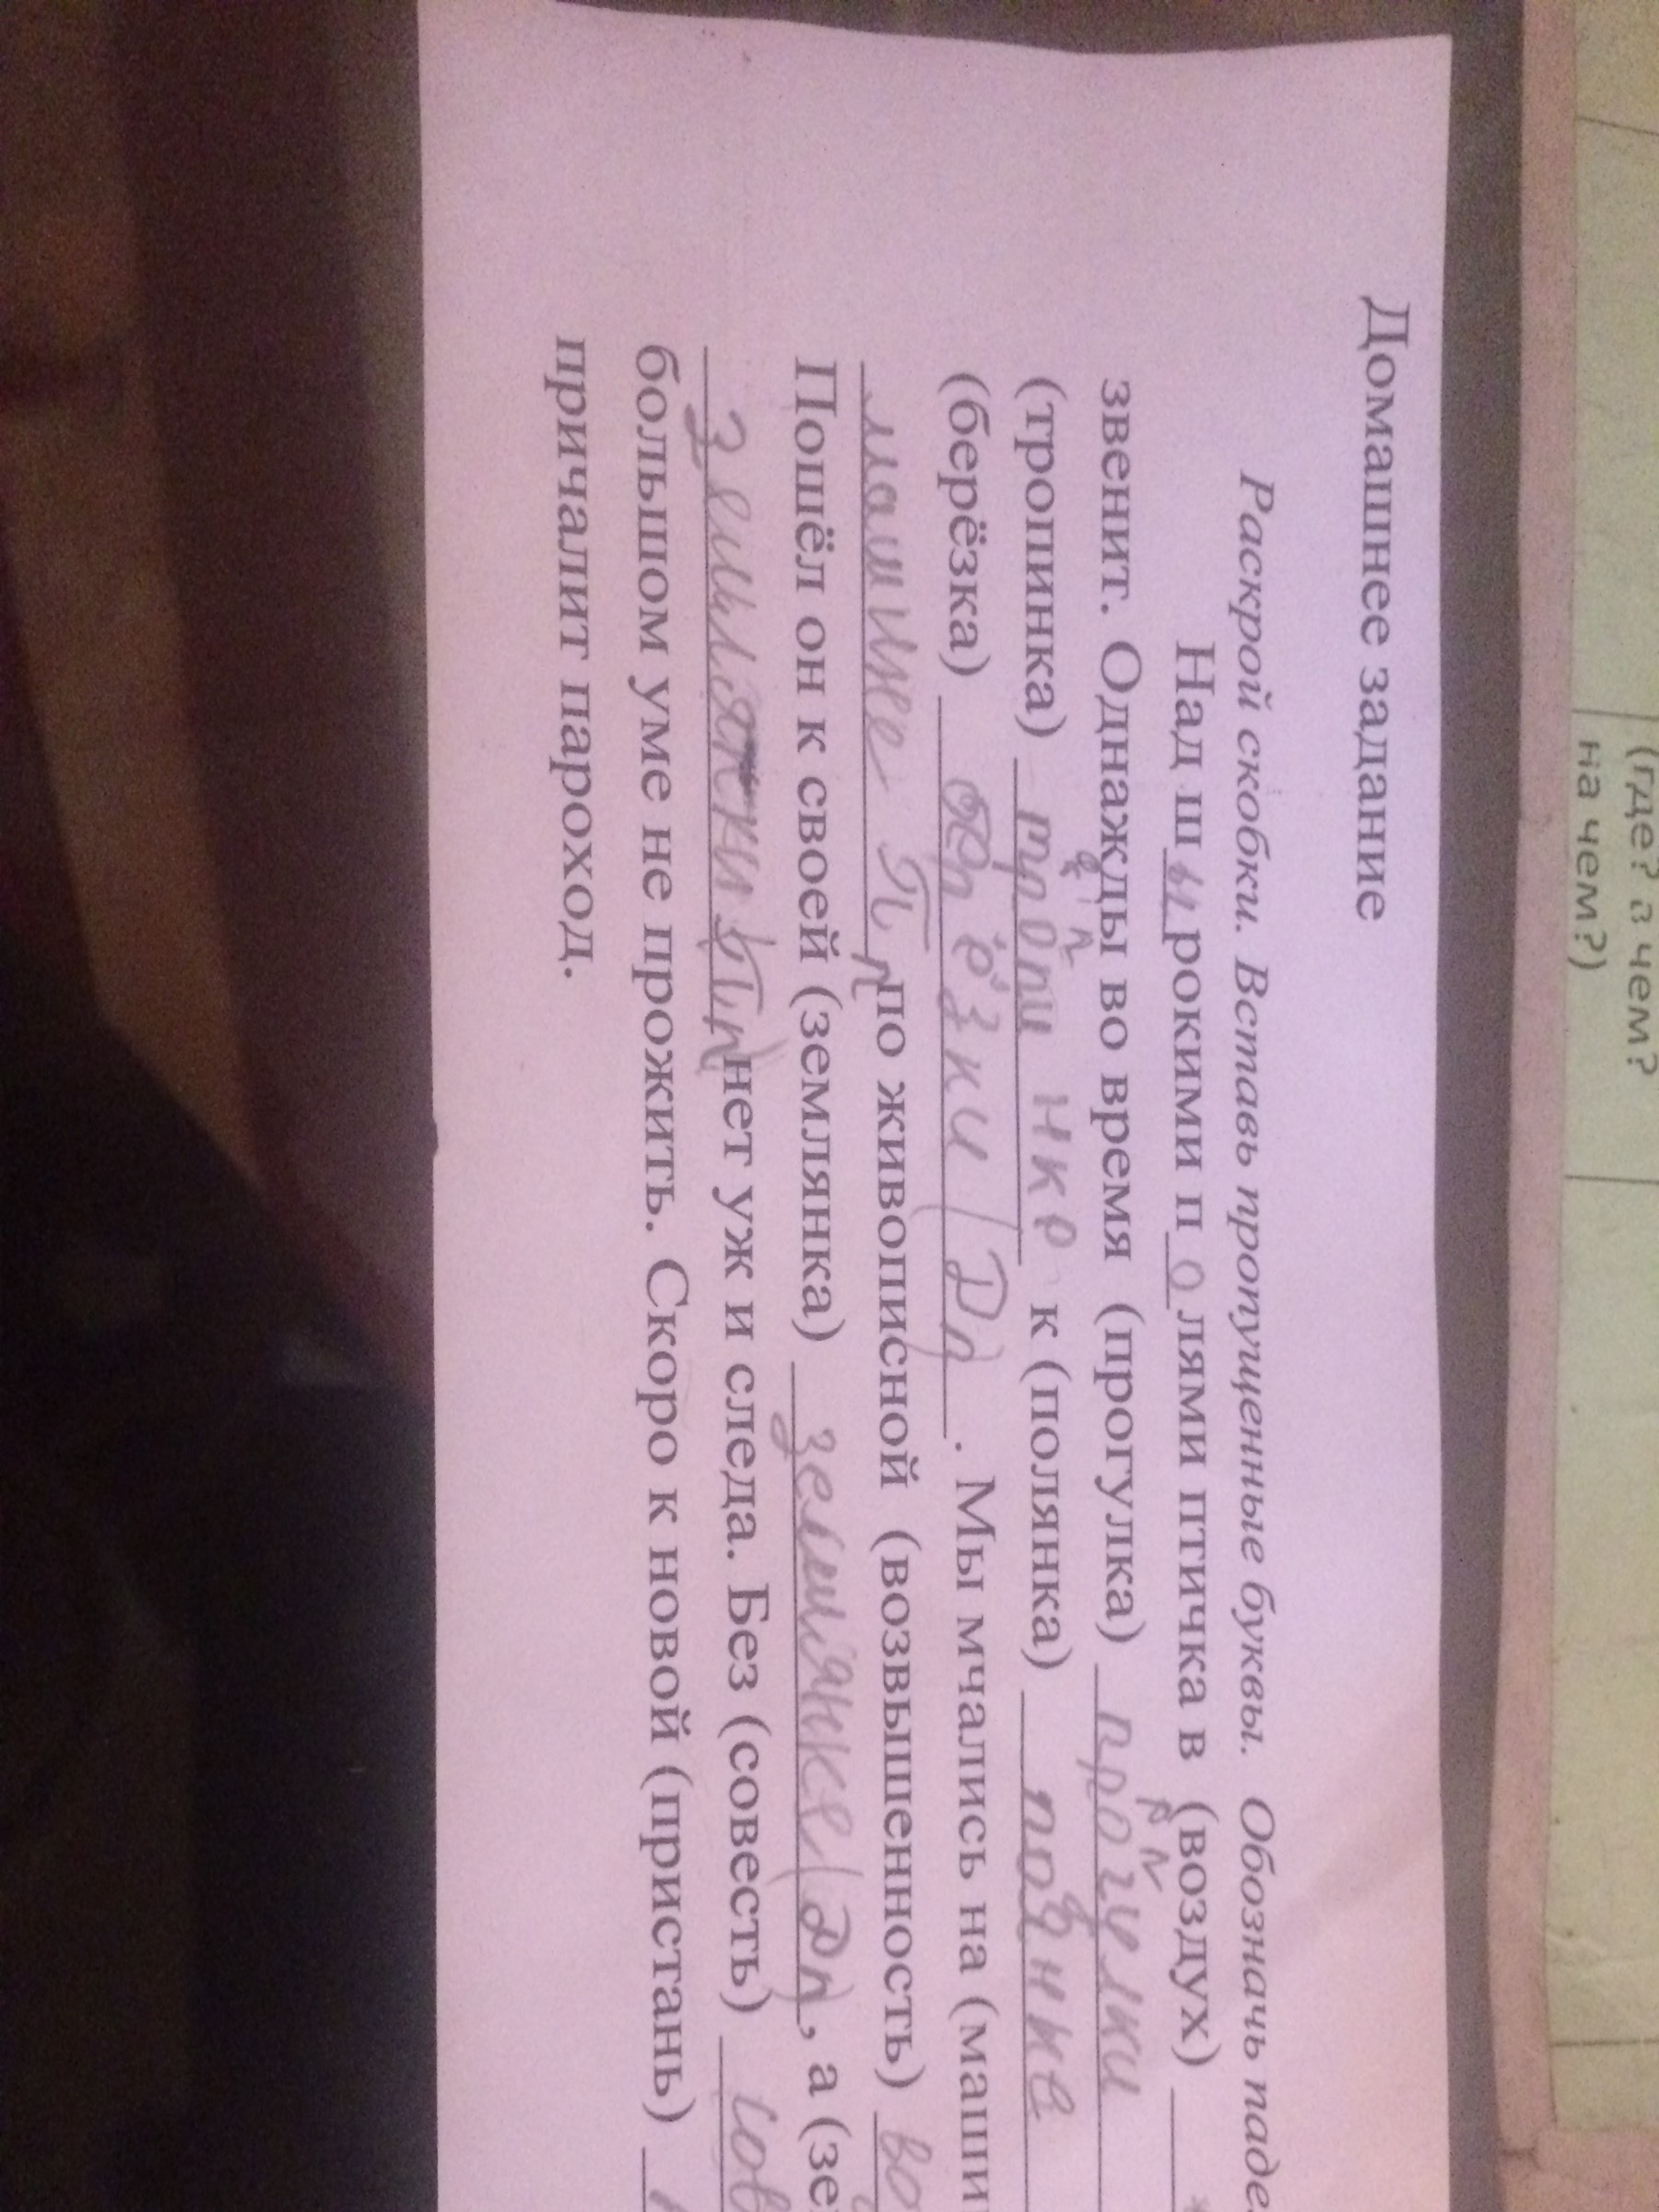 (где? в чем?
на чем?)
Домашнее задание
Раскрой скобки. Вставь пропущенные буквы. Обозначь паде
Над шырокими полями птичка в (воздух)
звенит. Однажды во время (прогулка) прогулки
(тропинка) тропинке к (полянка)
(берёзка) Дп. Мы мчались на (маши
машине Пп по живописной (возвышенность) во
Пошёл он к своей (землянка) землянке Дп, а (зе
землянки нет уж и следа. Без (совесть) сов
большом уме не прожить. Скоро к новой (пристань)
причалит пароход.